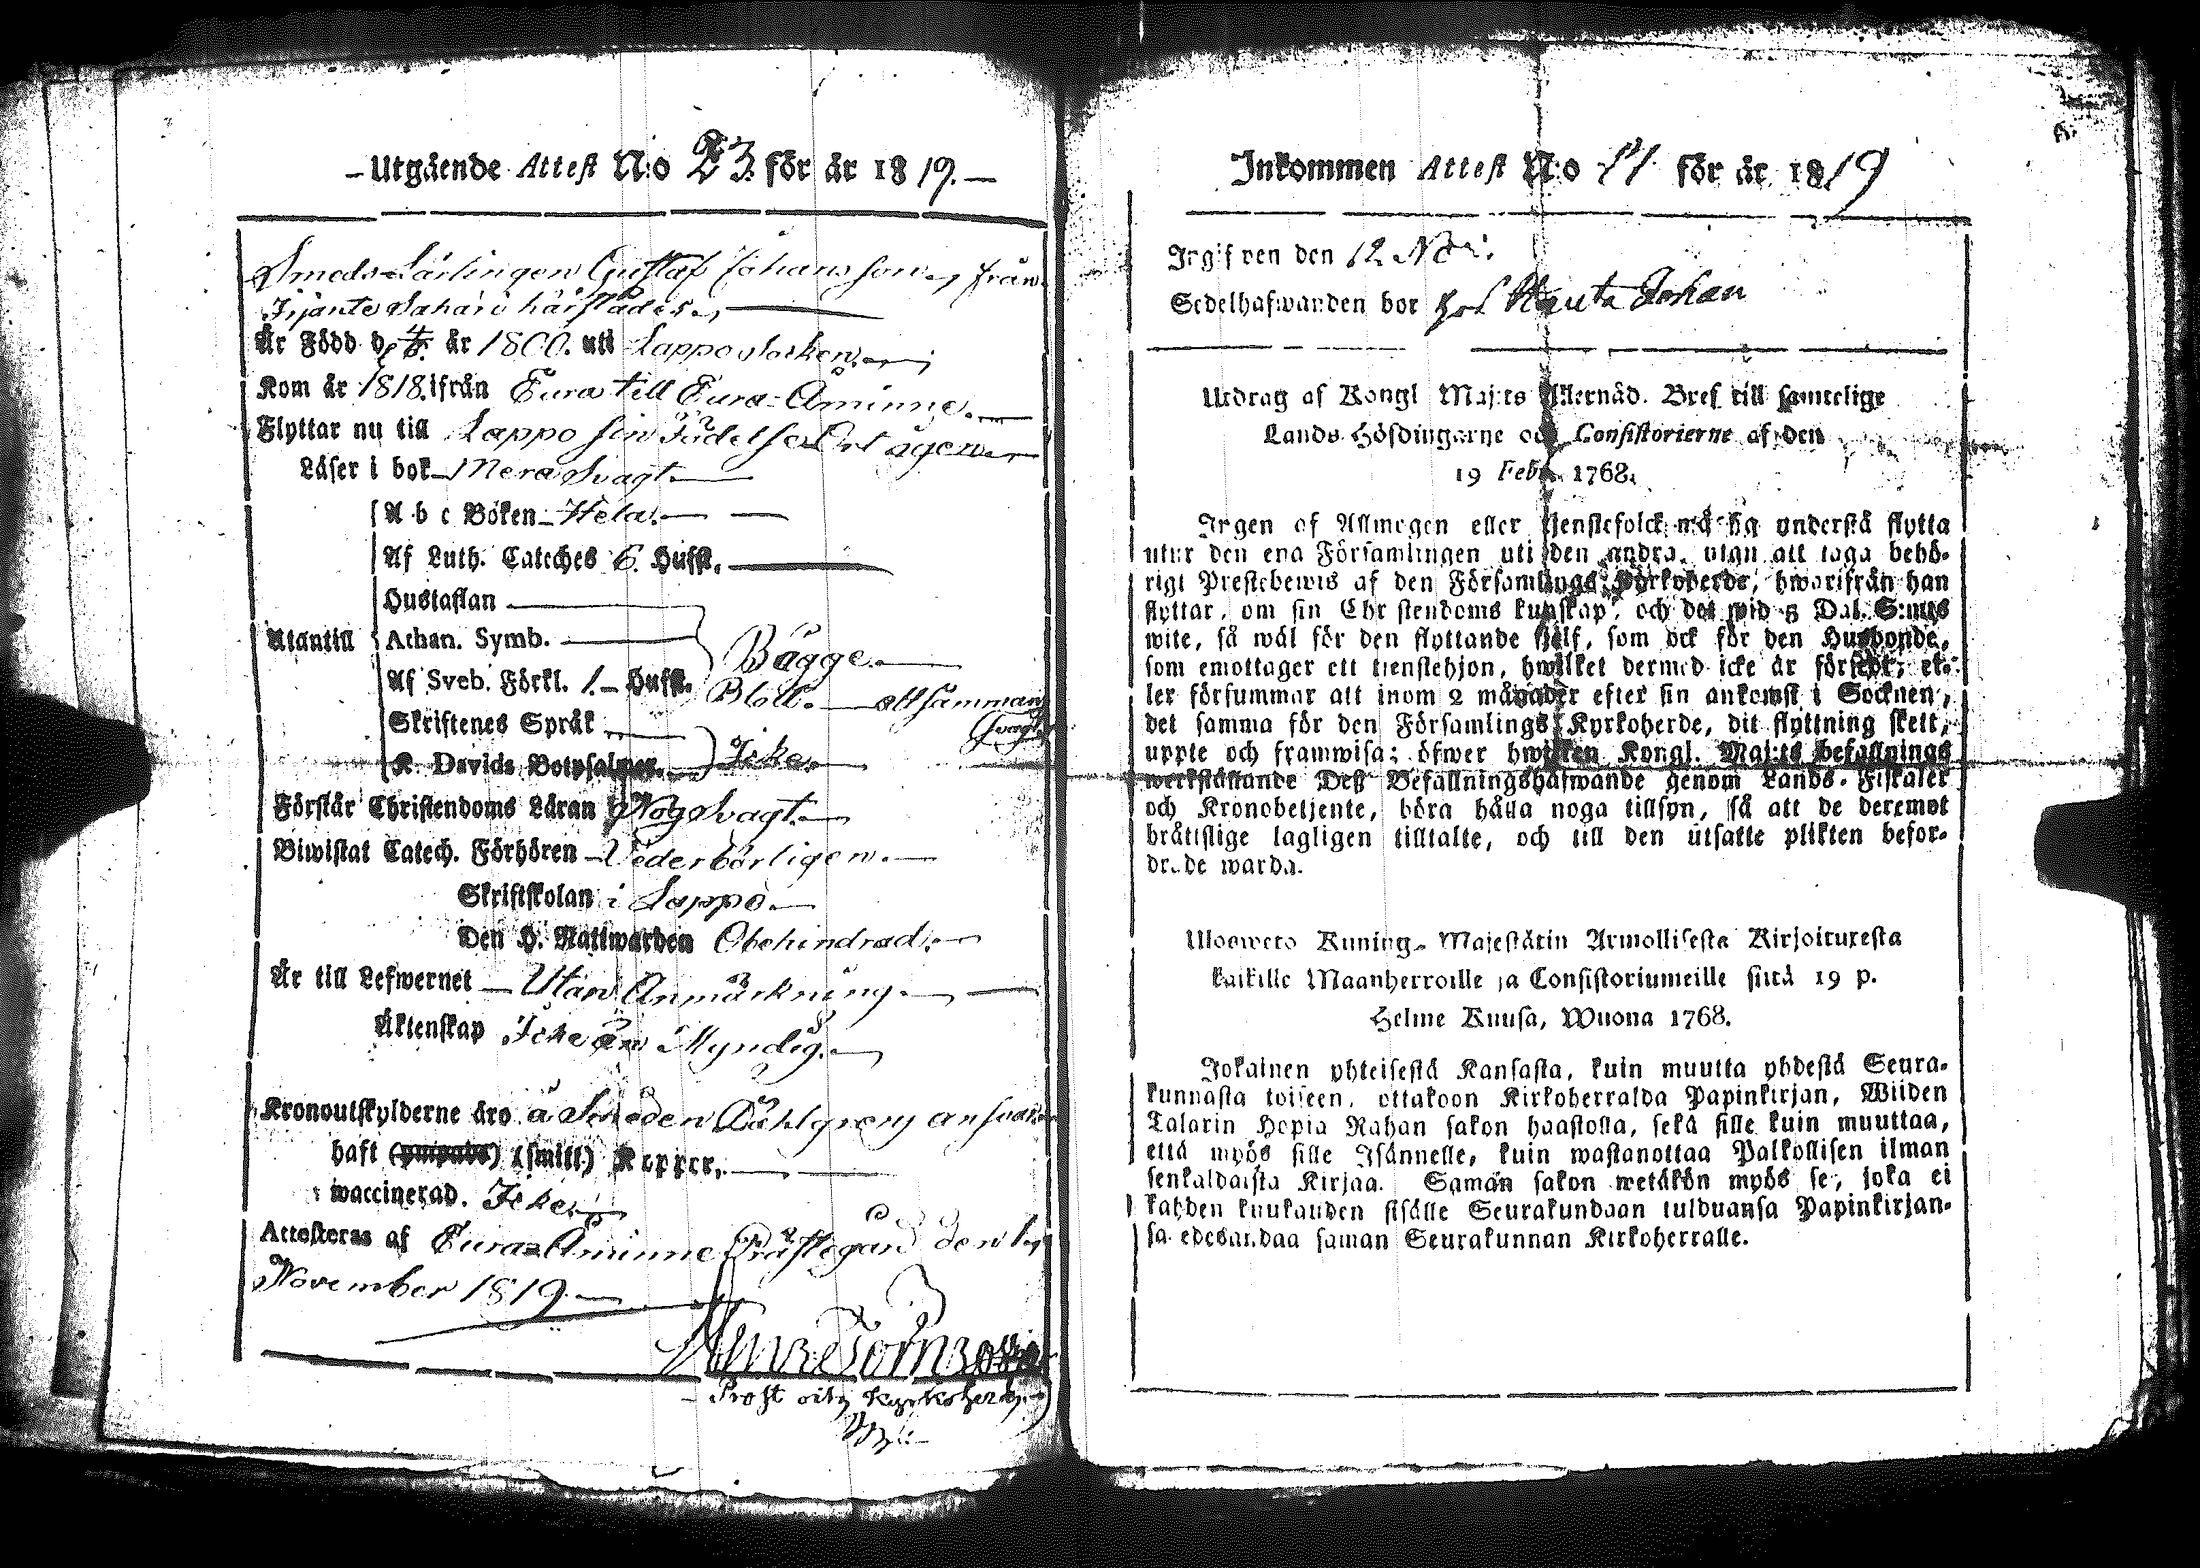 Utgående Attest N:o 23. för år 1819.
Smeds-Lärlingen Gustaf Johansson, från
Irjante Sahari härstädes,
Är Född d. år 1800. uti Lappo Socken.
Kom år 1818. ifrån Eura till Eura-Åminne.
Flyttar nu till Lappo sin Födelse Ort ågen
Läser i bok Mera Svagt.
A b c Boken Hela.
Af Luth. Catches 6. Hufst.
Hustaflan
Utantill Athan. Symb. Bägge.
Af Sveb. Förkl. 1. Hufst. Blott. altsamman svagt
Skriftenes Språk
K. Davids Botpsalmer. Icke.
Förstår Christendoms Läran Nog Svagt.
Biwistat Catech. Förhören Vederbörligen.
Skriftskolan i Lappo.
Den H. Nattwarden Obehindrad.
Är till Lefwernet Utan Anmärkning.
Äktenskap Icke än Myndig.
Kronoutskylderne äro å Smeden Dahlgrens answar
haft (smitt.) Kopper.
waccinerad. Icke.
Attesteras af Eura-Åminne Prästegård den
November 1819.
Prost och Kyrkoherde
Inkommen Attest N:o 11 för år 1819
Ingifven den 12 Nov:
Sedelhafwanden bor hos Johan
Utdrag af Kongl Maj:ts Allernåd. Bref till samtelige
Lands-Höfdingarne och Consistorierne af den
19 Febr. 1768.
Ingen af Allmogen eller tjenstefolck må sig understå flytta
utur den ena Församlingen uti den andra, utan att taga behö-
rigt Prestebewis af den Församlings Kyrkoherde, hwarifrån han
flyttar, om sin Christendoms kunskap, och det wid 5 Dal. S:mts
wite, så wäl för den flyttande sjelf, som ock för den Husbonde,
som emottager ett tienstehjon, hwilket dermed icke är försedt; el-
ler försummar att inom 2 månader efter sin ankomst i Socknen,
det samma för den Församlings Kyrkoherde, dit flyttning skett,
uppte och framwisa; öfwer hwilken Kongl. Maj:ts befallnings
werkställande Deß Befallningshafwande genom Lands-Fiskaler
och Kronobetjente, böra hålla noga tillsyn, så att de deremot
bråttslige lagligen tilltalte, och till den utsatte plikten befor-
drade warda.
Uloswето Kuning. Majestätin Armollisesta Kirjoituxesta
kaikille Maanherroille ja Consistoriumeille siitä 19 p.
Helme Kuusa, Wuona 1768.
Jokainen yhteisestä Kansasta, kuin muutta yhdestä Seura-
kunnasta toiseen, ottakoon Kirkoherralda Papinkirjan, Wiiden
Talarin Hopia Rahan sakon haastolla, sekä sille kuin muuttaa,
että myös sille Isännelle, kuin wastanottaa Palkollisen ilman
senkaldaista Kirjaa. Saman sakon wetäkön myös se, joka ei
kahden kuukauden sisälle Seurakundaan tulduansa Papinkirjan-
sa edesandaa saman Seurakunnan Kirkoherralle.